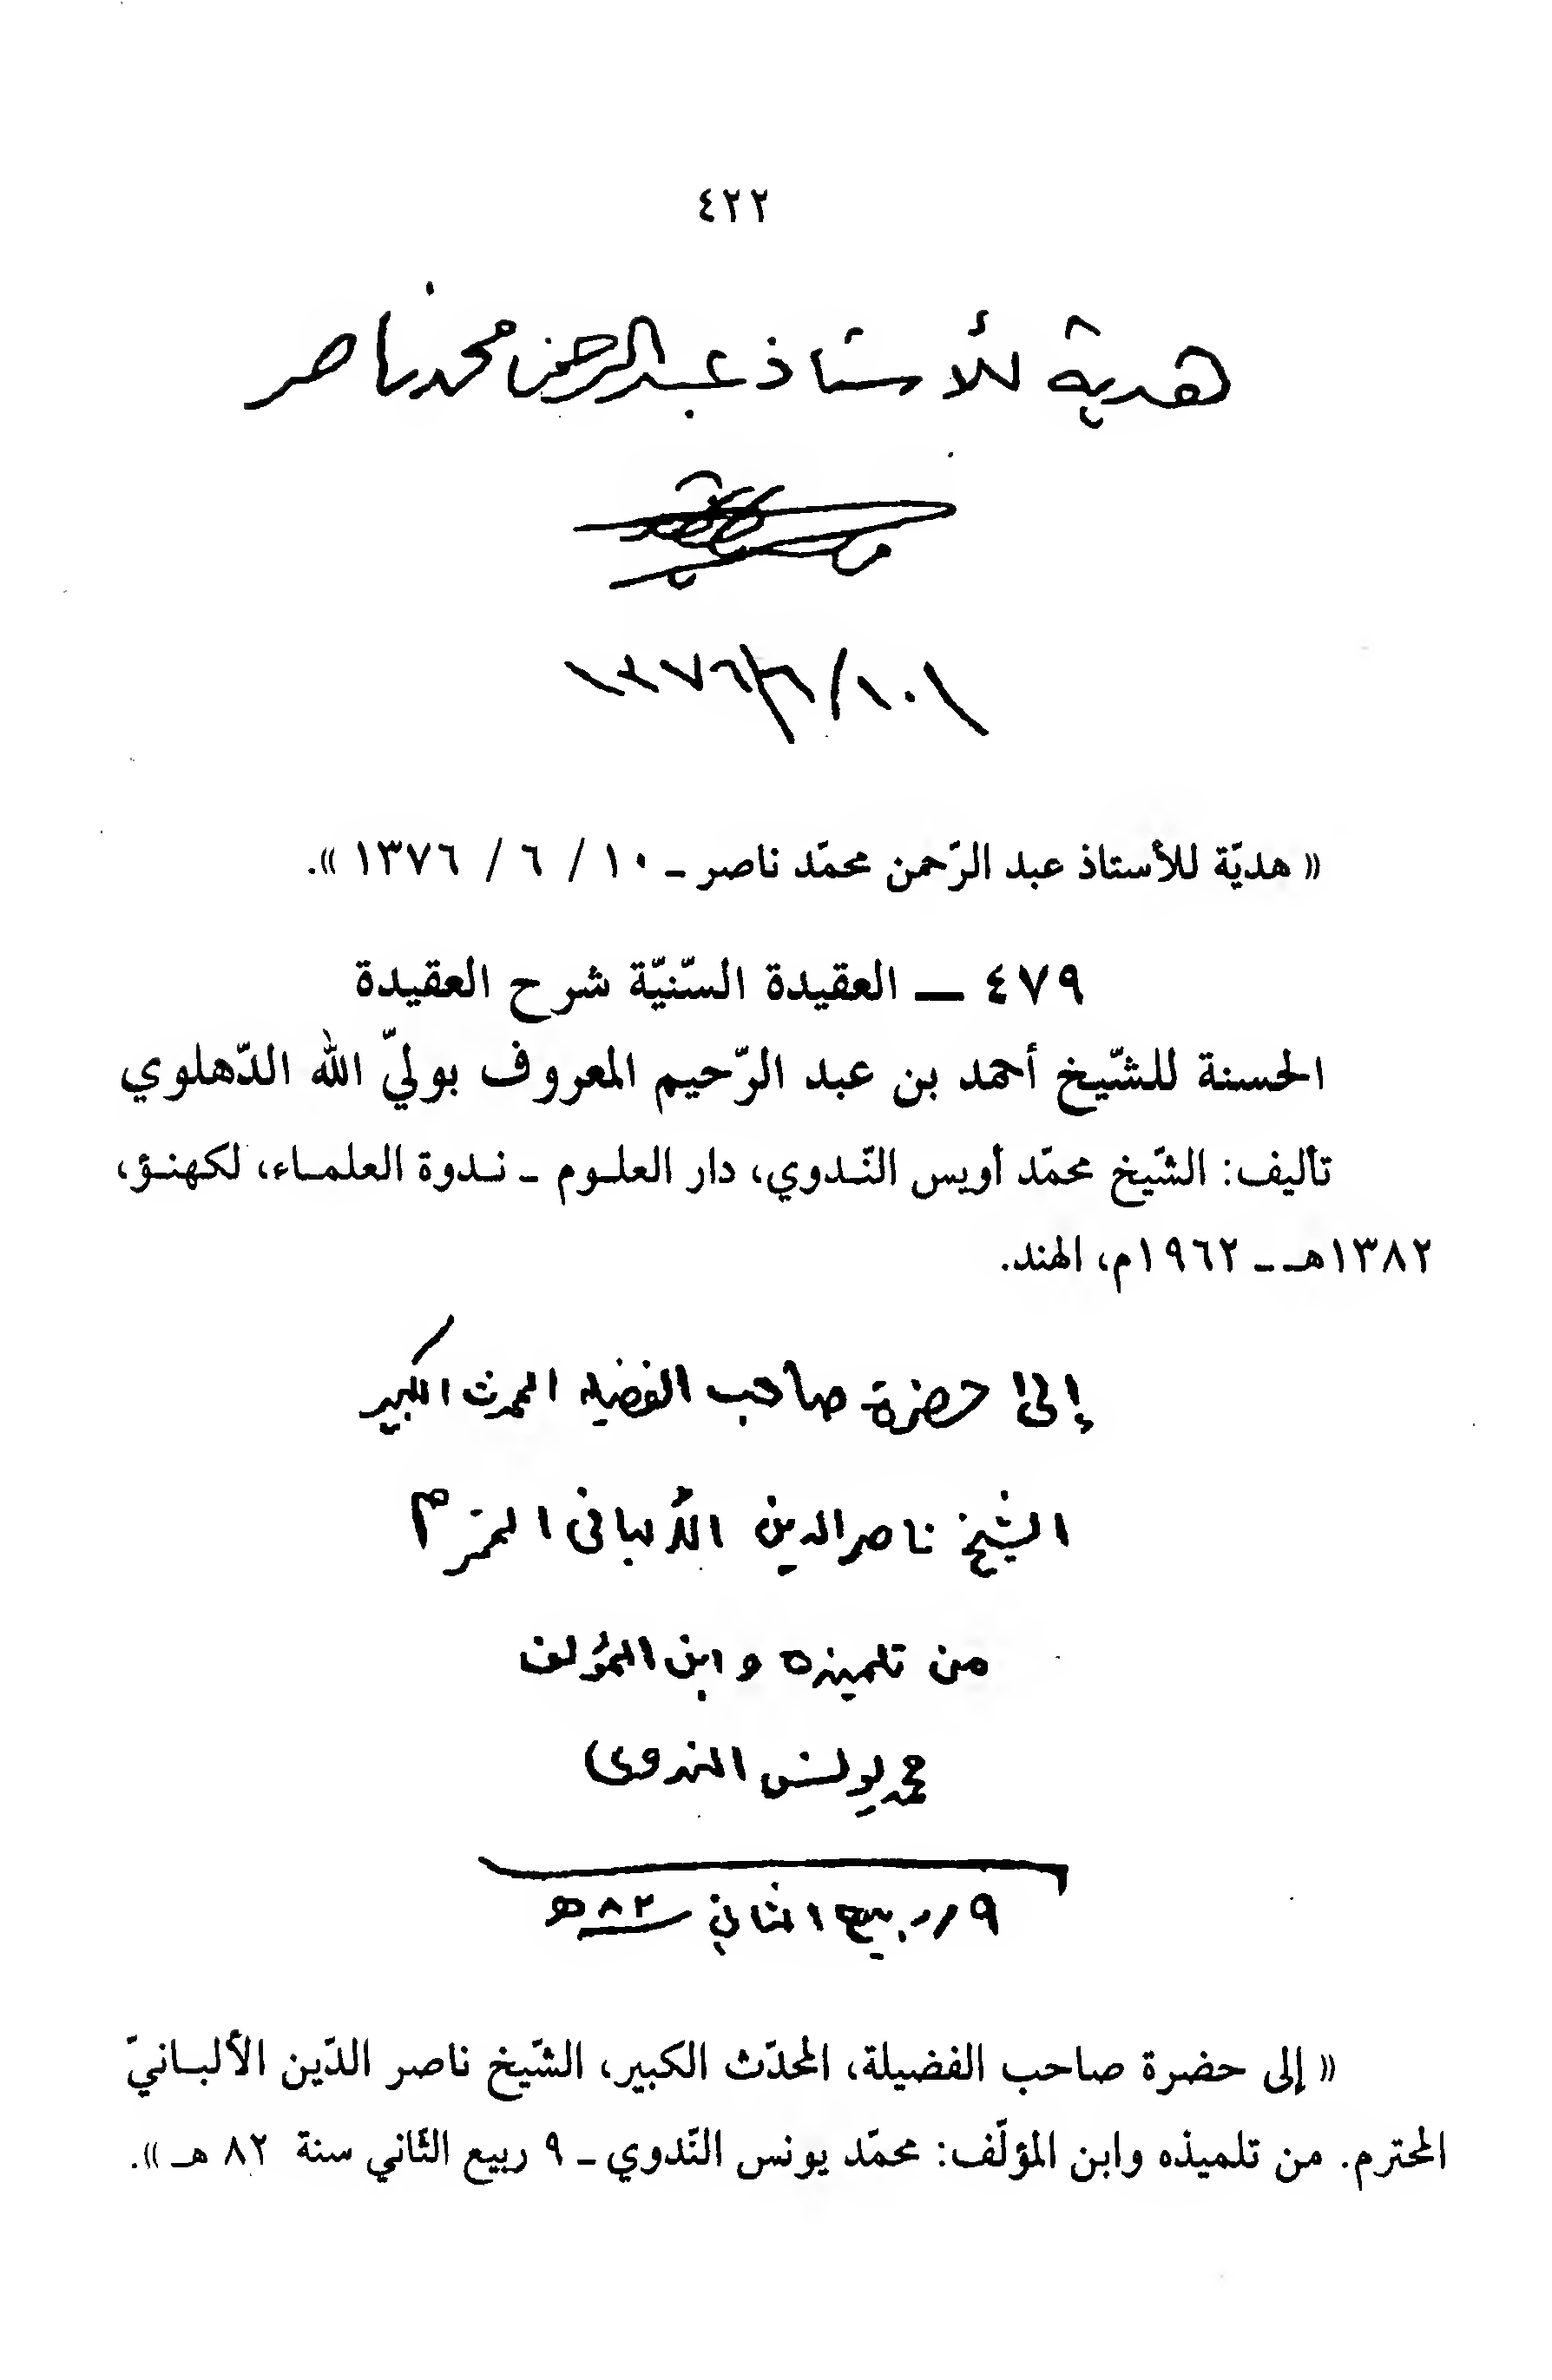 ٤٢٢
هدية للأستاذ عبد الرحمن محمد ناصر
١٠/٦/١٣٧٦
« هديّة للأستاذ عبد الرّحمن محمّد ناصر ـ ١٠ / ٦ / ١٣٧٦ ».
٤٧٩ ـ العقيدة السّنيّة شرح العقيدة
الحسنة للشّيخ أحمد بن عبد الرّحيم المعروف بوليّ الله الدّهلوي
تأليف: الشّيخ محمّد أويس النّدوي، دار العلوم ـ ندوة العلماء، لكهنؤ،
١٣٨٢هـ ـ ١٩٦٢م، الهند.
إلى حضرة صاحب الفضيلة المحدث الكبير
الشيخ ناصر الدين الألباني المحترم
من تلميذه وابن المؤلف
محمد يونس الندوي
٩ ربيع الثاني سنة ٨٢ هـ
« إلى حضرة صاحب الفضيلة، المحدّث الكبير، الشّيخ ناصر الدّين الألبانيّ
المحترم. من تلميذه وابن المؤلّف: محمّد يونس النّدوي ـ ٩ ربيع الثّاني سنة ٨٢ هـ ».